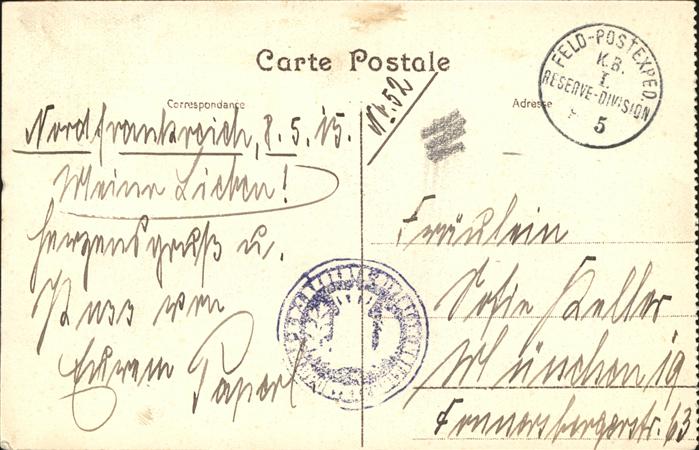 Carte Postale
Correspondance
Adresse
Nr. 52
FELD-POSTEXPED.
K.B.
I.
RESERVE-DIVISION
5
Nordfrankreich, 8.5.15.
Meine Lieben!
Herzensgruß u.
Kuss von
Eurem Papa
Fräulein
Sofie Keller
München 19
Donnersbergerstr. 63